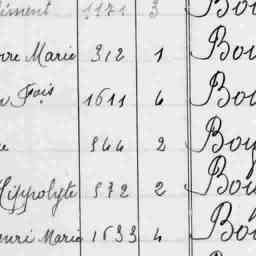 iment 1171 3 Bou
rre Marie 312 1 Bou
n Fois 1611 6 Bou
e 564 2 Bou
Hippolyte 572 2 Bou
enri Marie 1533 4 Bou